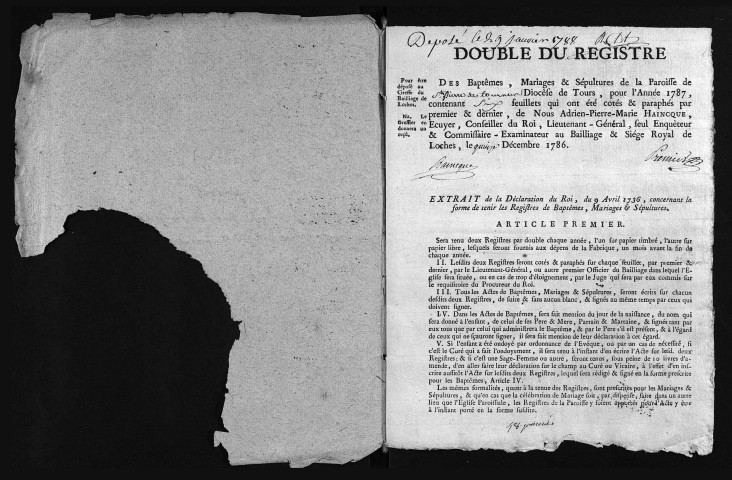 Deposé le 9 janvier 1788
DOUBLE DU REGISTRE
Pour être
déposé au
Greffe du
Bailliage de
Loches.
Na. Le
Greffier en
donnera un
reçu.
DES Baptêmes, Mariages & Sépultures de la Paroisse de
St Pierre de tournon Diocèse de Tours, pour l'Année 1787,
contenant Six feuillets qui ont été cotés & paraphés par
premier & dernier, de Nous Adrien-Pierre-Marie HAINCQUE,
Ecuyer, Conseiller du Roi, Lieutenant-Général, seul Enquêteur
& Commissaire-Examinateur au Bailliage & Siége Royal de
Loches, le quinze Décembre 1786.
Haincque
Premier
EXTRAIT de la Déclaration du Roi, du 9 Avril 1736, concernant la
forme de tenir les Registres de Baptêmes, Mariages & Sépultures.
ARTICLE PREMIER.
Sera tenu deux Registres par double chaque année, l'un sur papier timbré, l'autre sur
papier libre, lesquels seront fournis aux dépens de la Fabrique, un mois avant la fin de
chaque année.
II. Lesdits deux Registres seront cotés & paraphés sur chaque feuillet, par premier &
dernier, par le Lieutenant-Général, ou autre premier Officier du Bailliage dans lequel l'E-
glise sera située, ou en cas de trop d'éloignement, par le Juge qui sera par eux commis sur
le requisitoire du Procureur du Roi.
III. Tous les Actes de Baptêmes, Mariages & Sépultures, seront écrits sur chacun
desdits deux Registres, de suite & sans aucun blanc, & signés au même temps par ceux qui
doivent signer.
IV. Dans les Actes de Baptêmes, sera fait mention du jour de la naissance, du nom qui
sera donné à l'enfant, de celui de ses Pere & Mere, Parrain & Marraine, & signés tant par
eux tous que par celui qui administrera le Baptême, & par le Pere s'il est présent, & à l'égard
de ceux qui ne sçauront signer, il sera fait mention de leur déclaration à cet égard.
V. Si l'enfant a été ondoyé par ordonnance de l'Evêque, ou par un cas de nécessité, si
c'est le Curé qui a fait l'ondoyement, il sera tenu à l'instant d'en écrire l'Acte sur lesd. deux
Registres; & si c'est une Sage-Femme ou autre, seront tenus, sous peine de 10 livres d'a-
mende, d'en aller faire leur déclaration sur le champ au Curé ou Vicaire, à l'effet d'en ins-
crire aussitôt l'Acte sur lesdits deux Registres, lequel sera rédigé & signé en la forme prescrite
pour les Baptêmes, Article IV.
Les mêmes formalités, quant à la tenue des Registres, sont prescrites pour les Mariages &
Sépultures, & qu'en cas que la célébration de Mariage soit, par dispense, faite dans un autre
lieu que l'Eglise Paroissiale, les Registres de la Paroisse y soient apportés pour l'Acte y être
à l'instant porté en la forme susdite.